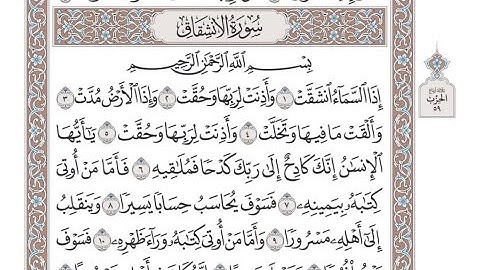 سُورَةُ الِانشِقَاقِ
بِسْمِ اللَّهِ الرَّحْمَٰنِ الرَّحِيمِ
إِذَا السَّمَاءُ انشَقَّتْ ١ وَأَذِنَتْ لِرَبِّهَا وَحُقَّتْ ٢ وَإِذَا الْأَرْضُ مُدَّتْ ٣
وَأَلْقَتْ مَا فِيهَا وَتَخَلَّتْ ٤ وَأَذِنَتْ لِرَبِّهَا وَحُقَّتْ ٥ يَا أَيُّهَا
الْإِنسَانُ إِنَّكَ كَادِحٌ إِلَىٰ رَبِّكَ كَدْحًا فَمُلَاقِيهِ ٦ فَأَمَّا مَنْ أُوتِيَ
كِتَابَهُ بِيَمِينِهِ ٧ فَسَوْفَ يُحَاسَبُ حِسَابًا يَسِيرًا ٨ وَيَنقَلِبُ
إِلَىٰ أَهْلِهِ مَسْرُورًا ٩ وَأَمَّا مَنْ أُوتِيَ كِتَابَهُ وَرَاءَ ظَهْرِهِ ١٠ فَسَوْفَ
الحِزْب
٥٩